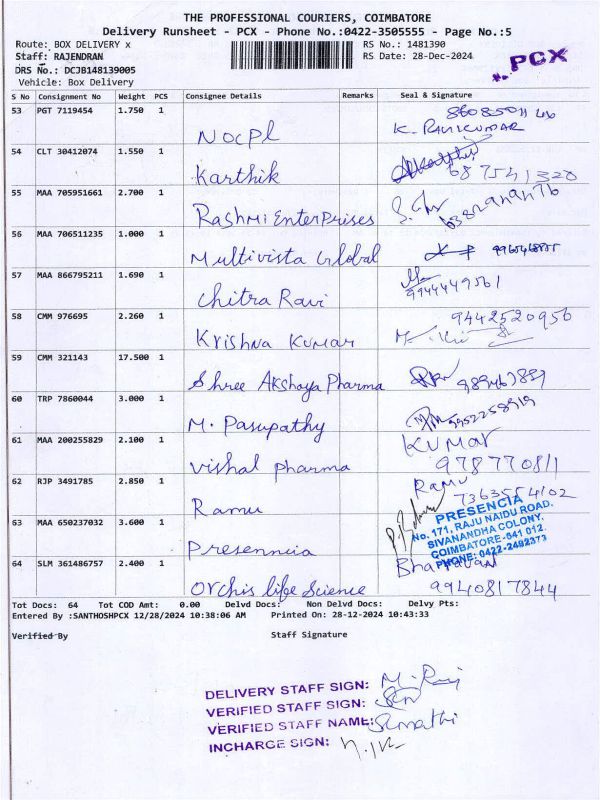 THE PROFESSIONAL COURIERS, COIMBATORE
Delivery Runsheet - PCX - Phone No.:0422-3505555 - Page No.:5
Route: BOX DELIVERY x RS No.: 1481390
Staff: RAJENDRAN RS Date: 28-Dec-2024
PCX
DRS No.: DCJB148139005
Vehicle: Box Delivery
S No Consignment No Weight PCS Consignee Details Remarks Seal & Signature
53 PGT 7119454 1.750 1 NOCPL K. RAVIKUMAR
54 CLT 30412074 1.550 1 Karthik
55 MAA 705951661 2.700 1 Rashmi Enterprises
56 MAA 706511235 1.000 1 Multivista Global
57 MAA 866795211 1.690 1 Chitra Ravi 9944449561
58 CMM 976695 2.260 1 Krishna Kumar 9442520956
59 CMM 321143 17.500 1 Shree Akshaya Pharma
60 TRP 7860044 3.000 1 M. Pasupathy
61 MAA 200255829 2.100 1 Vishal pharma KUMAR 9787770811
62 RJP 3491785 2.850 1 Ramu Ramu
63 MAA 650237032 3.600 1 Presenncia
PRESENCIA
No. 171, RAJU NAIDU ROAD.
SIVANANDHA COLONY,
COIMBATORE-641 012.
PHONE: 0422-2492373
64 SLM 361486757 2.400 1 Orchis life Science 9940817844
Tot Docs: 64 Tot COD Amt: 0.00 Delvd Docs: Non Delvd Docs: Delvy Pts:
Entered By :SANTHOSHPCX 12/28/2024 10:38:06 AM Printed On: 28-12-2024 10:43:33
Verified By Staff Signature
DELIVERY STAFF SIGN: M. Ravi
VERIFIED STAFF SIGN:
VERIFIED STAFF NAME: Sumathi
INCHARGE SIGN: